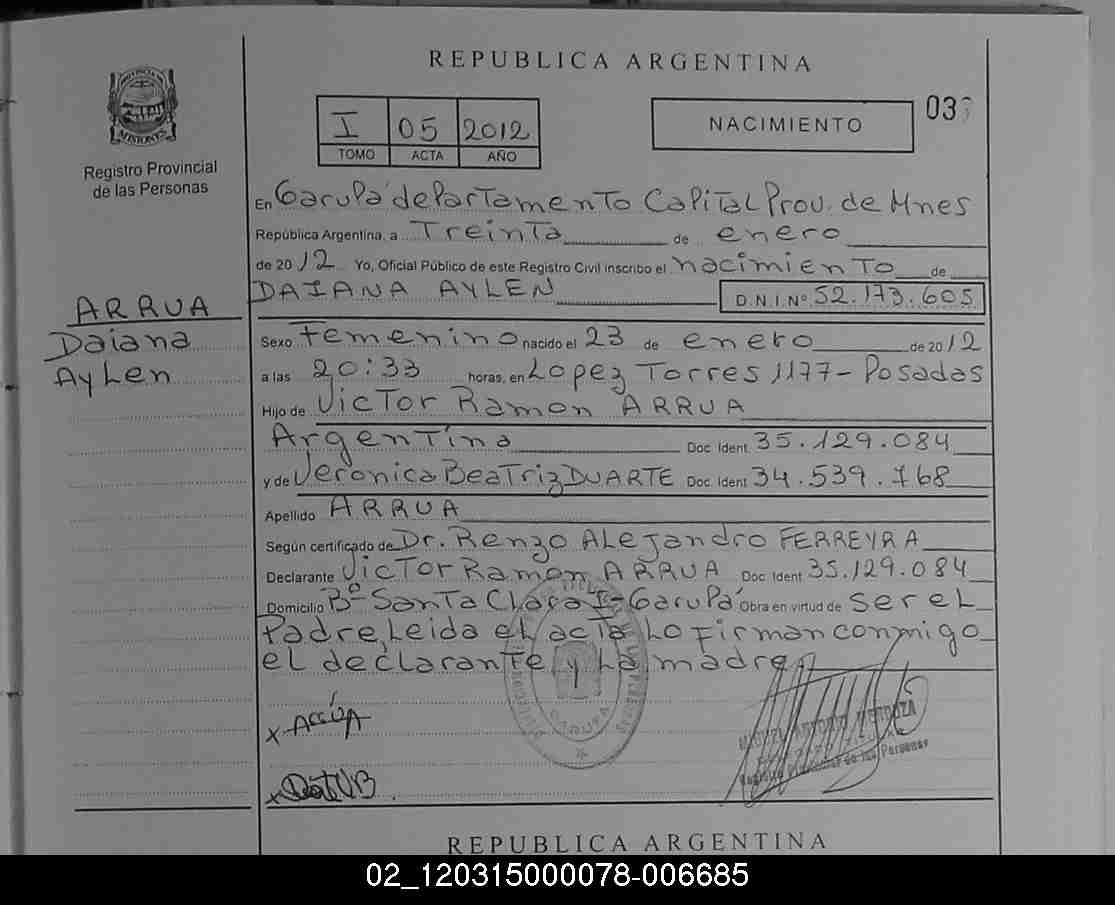 REPUBLICA ARGENTINA
PROVINCIA DE
MISIONES
Registro Provincial
de las Personas
I 05 2012
TOMO ACTA AÑO
NACIMIENTO
03
En Garupá departamento Capital Prov. de Mnes
República Argentina, a Treinta de enero
de 2012 Yo, Oficial Público de este Registro Civil inscribo el nacimiento de
DAIANA AYLEN D.N.I. Nº 52.173.605
ARRUA
Daiana
Aylen
Sexo Femenino nacido el 23 de enero de 2012
a las 20:33 horas, en Lopez Torres 1177 - Posadas
Hijo de Victor Ramon ARRUA
Argentina Doc Ident. 35.129.084
y de Veronica Beatriz DUARTE Doc Ident 34.539.768
Apellido ARRUA
Según certificado de Dr. Renzo Alejandro FERREYRA
Declarante Victor Ramon ARRUA Doc Ident 35.129.084
Domicilio Bº Santa Clara I - Garupá Obra en virtud de ser el
Padre, Leida el acta Lo firman conmigo
el declarante y La madre
x Arrúa
MIGUEL ANTONIO MENDOZA
Registro Provincial de las Personas
x
REPUBLICA ARGENTINA
02_120315000078-006685